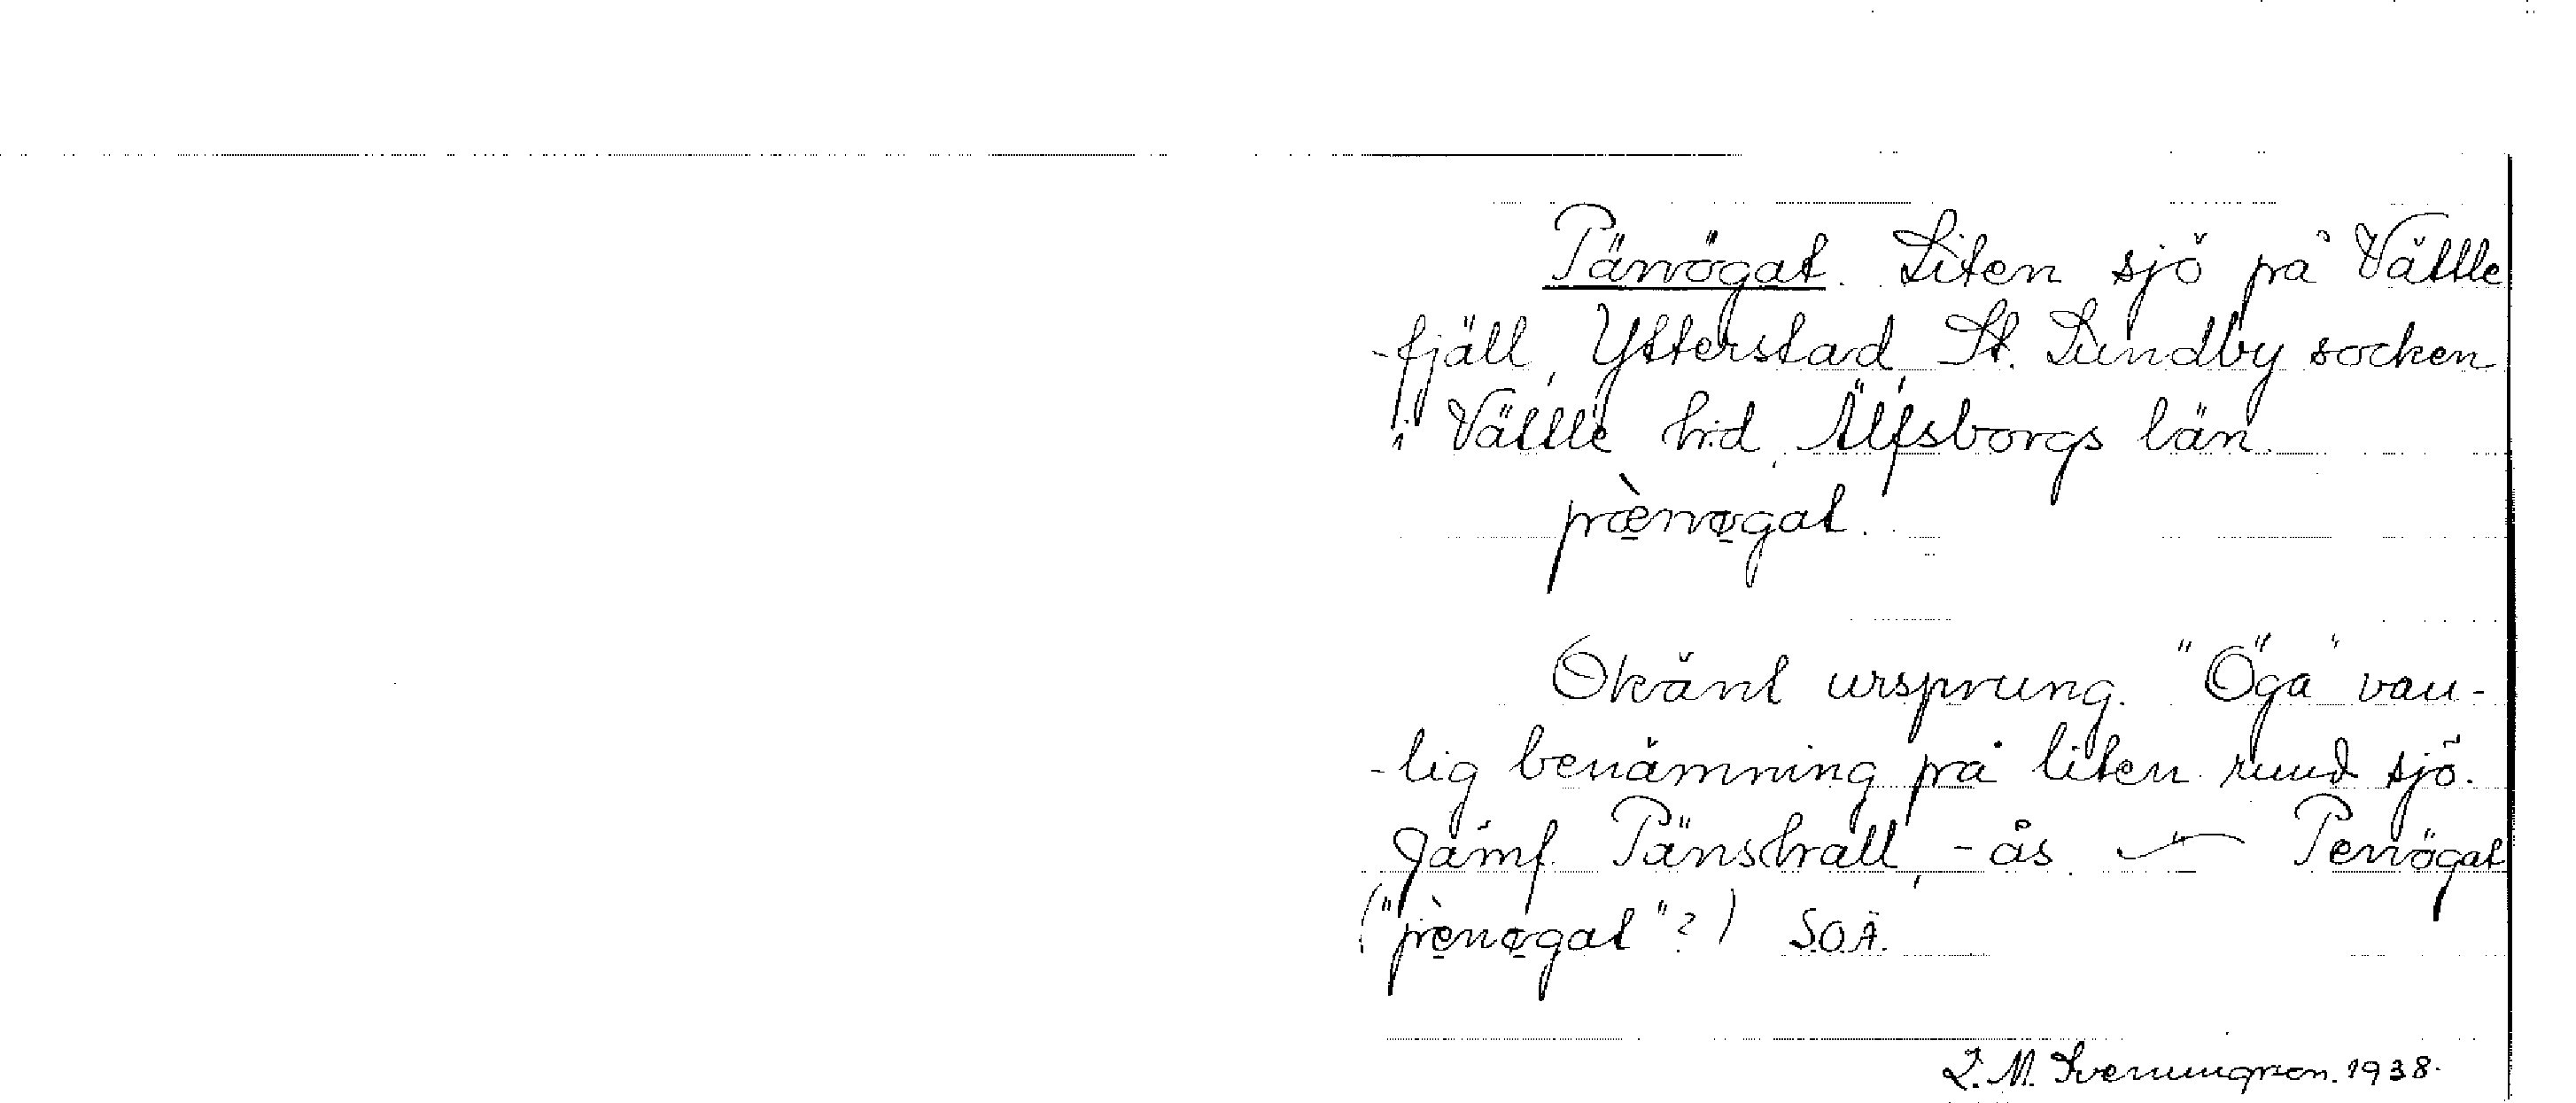 Pänögat. Liten sjö på Vättle
-fjäll, Ytterstad, St. Lundby socken
i Vättle hd, Älfsborgs län.
pæ̀nøgat.
Okänt ursprung. "Öga" van-
-lig benämning på liten rund sjö.
Jämf Pänskall, -ås. — Penögat
("pènøgat"?) S.O.Ä.
L. M. Svenungsson. 1938.